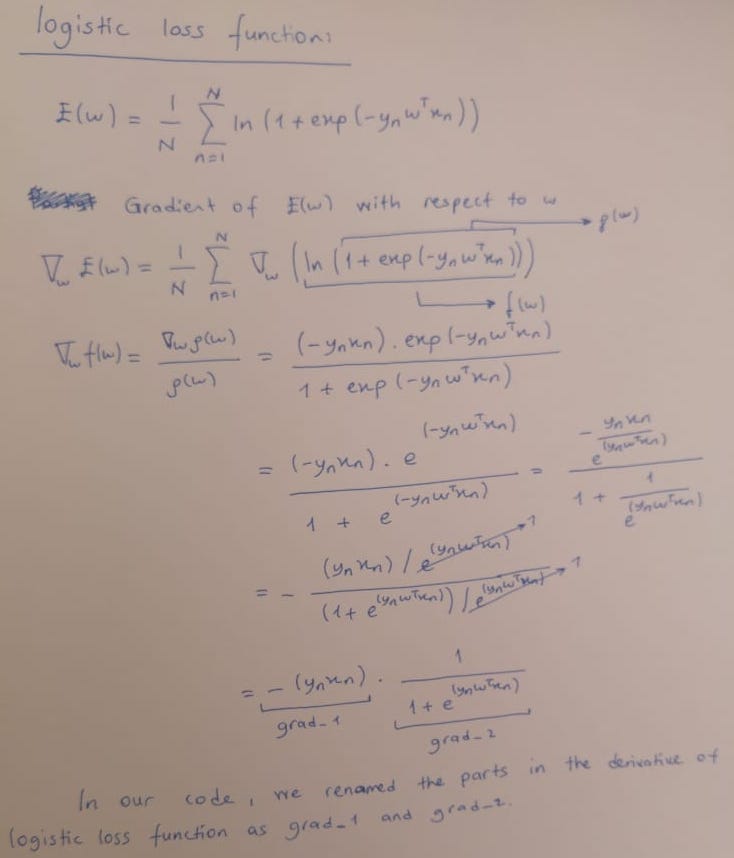 logistic loss function:
E(w) = 1/N ∑_{n=1}^{N} ln (1 + exp (-yₙ wᵀxₙ))
Gradient of E(w) with respect to w
∇_w E(w) = 1/N ∑_{n=1}^{N} ∇_w (ln (1 + exp (-yₙ wᵀxₙ))) → g(w)
→ f(w)
∇_w f(w) = ∇_w g(w) / g(w) = (-yₙxₙ) . exp (-yₙ wᵀxₙ) / 1 + exp (-yₙ wᵀxₙ)
= (-yₙxₙ) . e^(-yₙwᵀxₙ) / 1 + e^(-yₙwᵀxₙ) = - yₙxₙ / e^(yₙwᵀxₙ) / 1 + 1 / e^(yₙwᵀxₙ)
= - (yₙxₙ) / e^(yₙwᵀxₙ) → 1 / (1 + e^(yₙwᵀxₙ)) / e^(yₙwᵀxₙ) → 1
= - (yₙxₙ) . 1 / 1 + e^(yₙwᵀxₙ)
grad_1 grad_2
In our code, we renamed the parts in the derivative of
logistic loss function as grad_1 and grad_2.